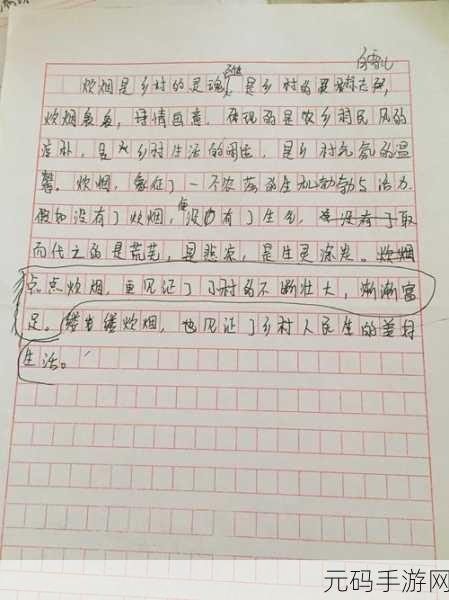 炊烟是乡村的灵魂，是乡村的
炊烟袅袅，诗情画意，体现的是农乡村民风的
淳朴，是乡村生活的闲适，是乡村气氛的温
馨。炊烟，象征了一个农落的生机勃勃与活力
假如没有了炊烟，便没有了生气，没有了取
而代之的是荒芜，是悲哀，是生灵涂炭。炊烟
点点炊烟，更见证了乡村的不断壮大，渐渐富
足。缕缕炊烟，也见证了乡村人民生的美好
生活。
元码手游网